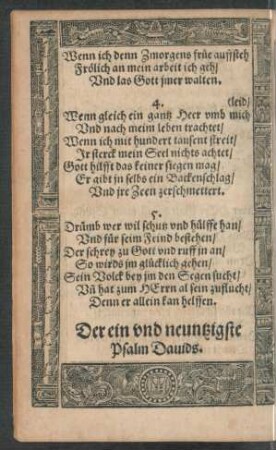 Wenn ich denn Zmorgens früe auffsteh
Frölich an mein arbeit ich geh/
Vnd las Gott jmer walten.
4.
Wenn gleich ein gantz Heer vmb mich (leid/
Vnd nach meim leben trachtet/
Wenn ich mit hundert tausent streit/
Ir sterck mein Seel nichts achtet/
Gott hilfft das keiner siegen mag/
Er gibt jn selbs ein Backenschlag/
Vnd jre Zeen zerschmettert.
5.
Drümb wer wil schutz vnd hülffe han/
Vnd für seim Feind bestehen/
Der schrey zu Gott vnd ruff jn an/
So wirds jm glücklich gehen/
Sein Volck bey jm den Segen sucht/
Vñ hat zum HErrn al sein zuflucht/
Denn er allein kan helffen.
Der ein vnd neuntzigste
Psalm Dauids.